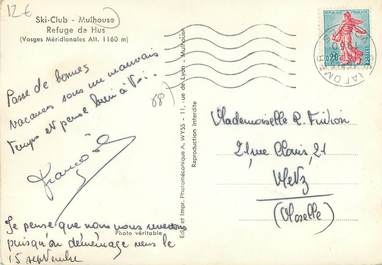 12€
Ski-Club - Mulhouse
Refuge de Hus
(Vosges Méridionales Alt. 1160 m)
Passe de bonnes
vacances sous un mauvais
temps et pense bien à toi!
François
Je pense que nous nous reverrons
puisqu'on déménage vers le
15 septembre
Photo véritable
Edit. et Impr. Photomécanique A. WYSS - 11, rue de Lyon - Mulhouse
Reproduction interdite
88
Mademoiselle R.
21 rue Clovis, 21
Metz
(Moselle)
0,20